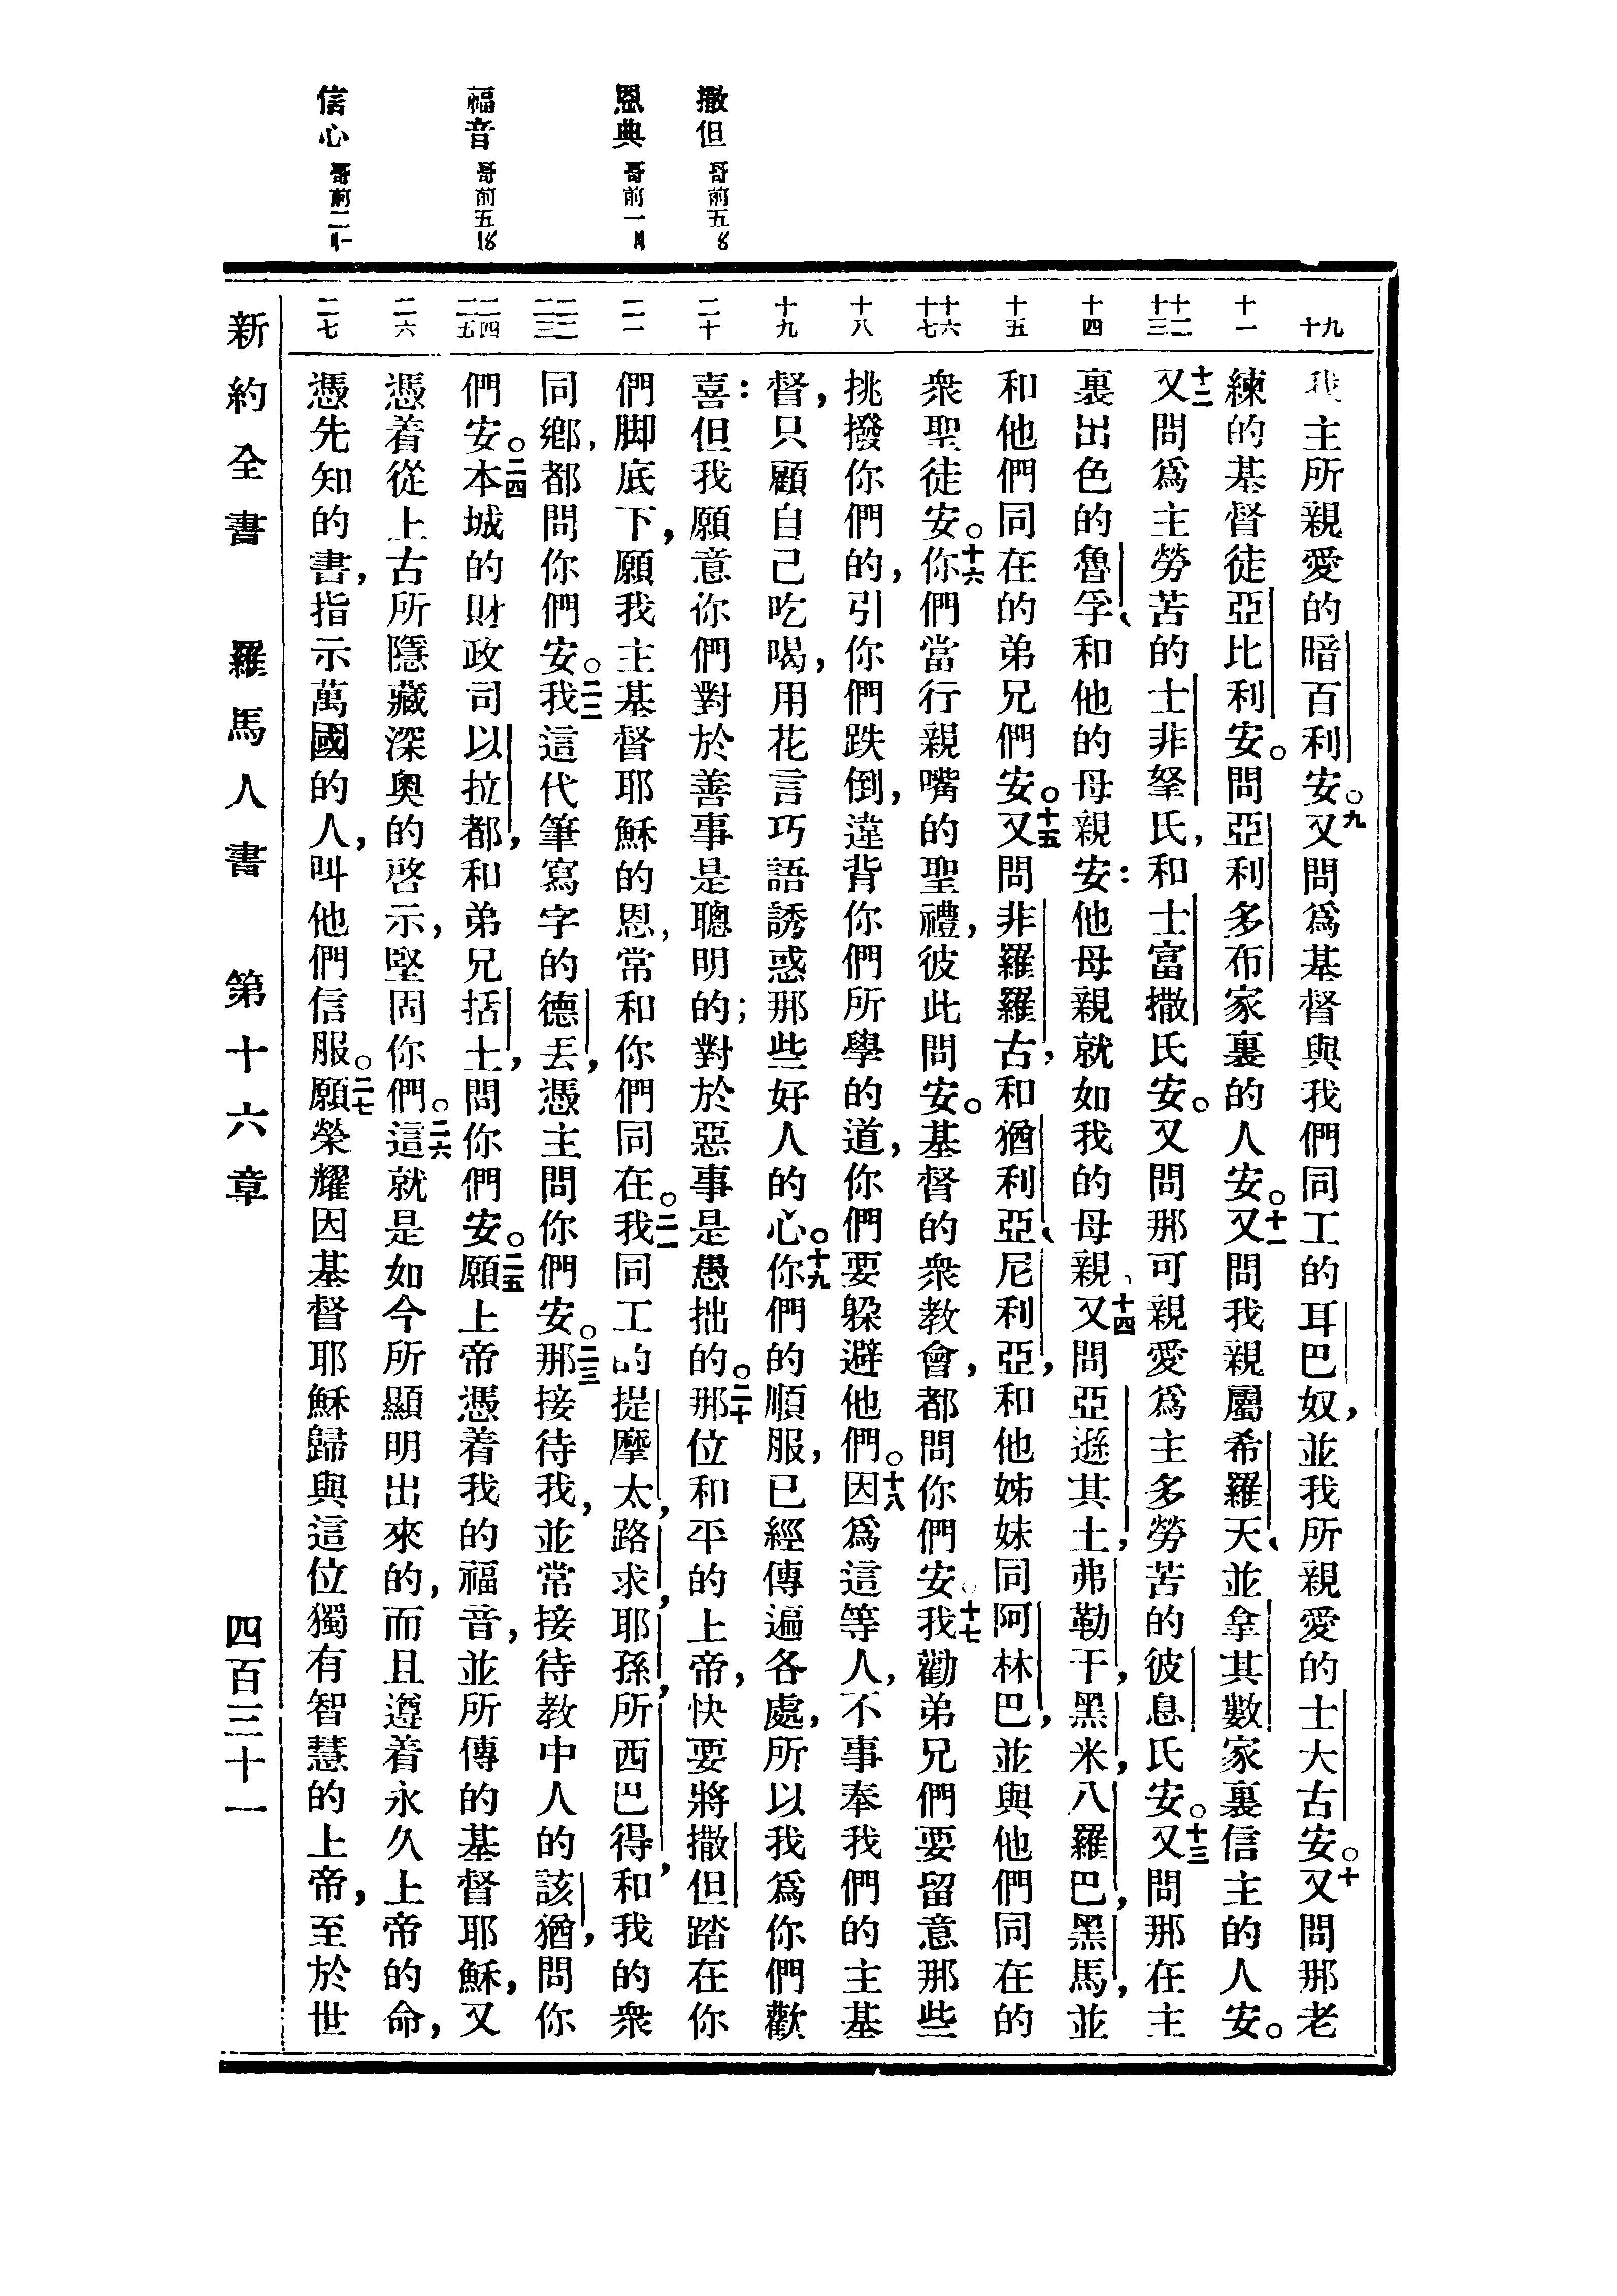 撒但 哥前五〥
恩典 哥前一〣
福音 哥前五〡〥
信心 哥前二
九
十
十一
十二
十三
十四
十五
十六
十七
十八
十九
二十
二一
二二
二三
二四
二五
二六
二七
我主所親愛的暗百利安。九又問爲基督與我們同工的耳巴奴，並我所親愛的士大古安。十又問那老
練的基督徒亞比利安。問亞利多布家裏的人安。十一又問我親屬希羅天、並拿其數家裏信主的人安。
十二又問爲主勞苦的士非拏氏，和士富撒氏安。又問那可親愛爲主多勞苦的彼息氏安。十三又問那在主
裏出色的魯孚、和他的母親安：他母親就如我的母親、十四又問亞遜其土，弗勒干，黑米，八羅巴，黑馬，並
和他們同在的弟兄們安。十五又問非羅羅古，和猶利亞、尼利亞，和他姊妹同阿林巴，並與他們同在的
衆聖徒安。十六你們當行親嘴的聖禮，彼此問安。基督的衆教會，都問你們安。十七我勸弟兄們要留意那些
挑撥你們的，引你們跌倒，違背你們所學的道，你們要躱避他們。十八因爲這等人，不事奉我們的主基
督，只顧自己吃喝，用花言巧語誘惑那些好人的心。十九你們的順服，已經傳遍各處，所以我爲你們歡
喜：但我願意你們對於善事是聰明的；對於惡事是愚拙的。二十那位和平的上帝，快要將撒但踏在你
們脚底下，願我主基督耶穌的恩，常和你們同在。二一我同工的提摩太，路求，耶孫，所西巴得，和我的衆
同鄉，都問你們安。二二我這代筆寫字的德丟，憑主問你們安。二三那接待我，並常接待教中人的該猶，問你
們安。二四本城的財政司以拉都，和弟兄括土，問你們安。二五願上帝憑着我的福音，並所傳的基督耶穌，又
憑着從上古所隱藏深奥的啓示，堅固你們。二六這就是如今所顯明出來的，而且遵着永久上帝的命，
憑先知的書，指示萬國的人，叫他們信服。二七願榮耀因基督耶穌歸與這位獨有智慧的上帝，至於世
新約全書 羅馬人書 第十六章 四百三十一